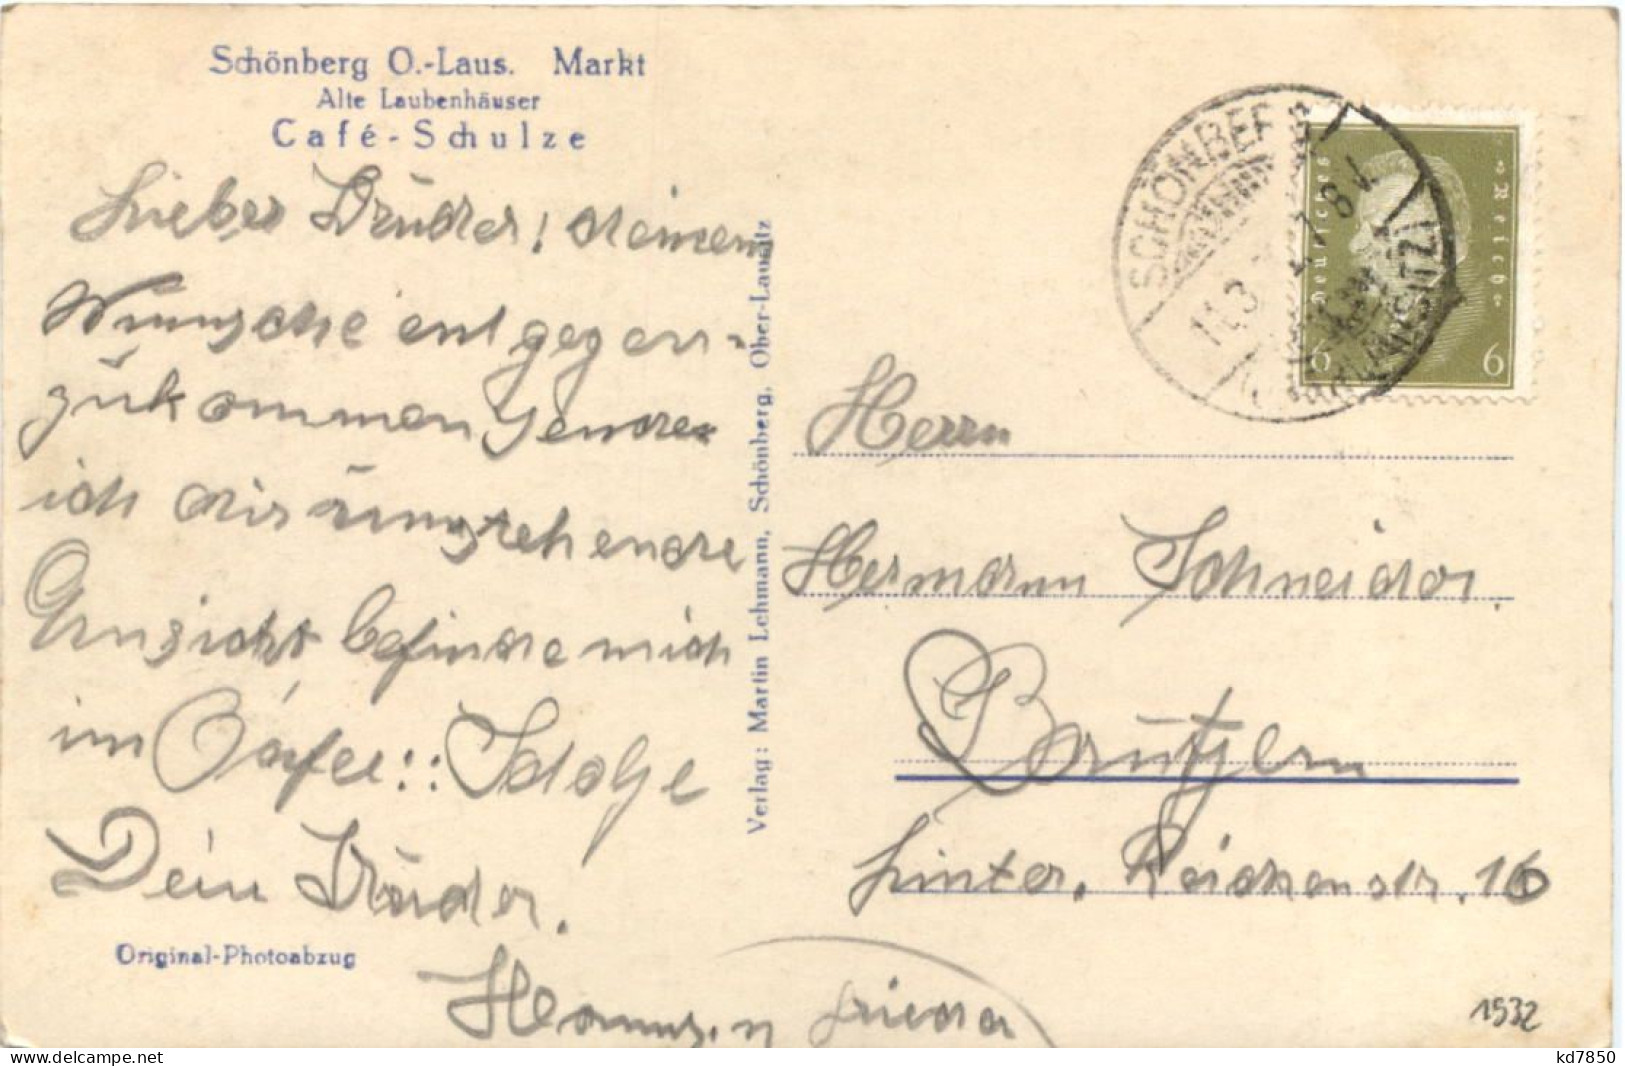 Schönberg O.-Laus. Markt
Alte Laubenhäuser
Café-Schulze
Lieber Brüder! deinem
Wunsche entgegen-
zukommen sende
ich dir umstehende
Ansicht befinde mich
im Cafee::
Dein Brüder.
Original-Photoabzug
Verlag: Martin Lehmann, Schönberg, Ober-Lausitz
SCHÖNBERG
11.3
7-8 V.
Deutsches Reich
6 6
Herrn
Hermann Schneider.
Bautzen
hinter. Reichenstr. 16
1932
kd7850